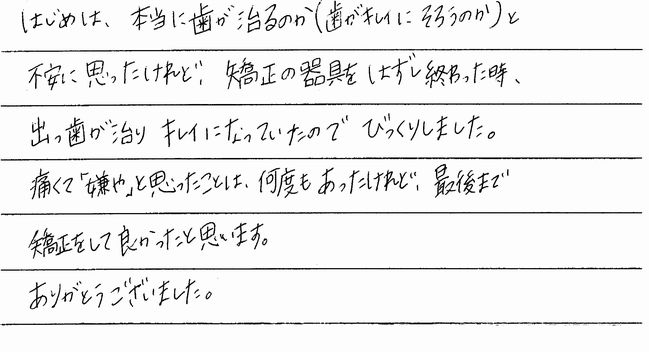 はじめは、本当に歯が治るのか(歯がキレイにそろうのか)と
不安に思ったけれど、矯正の器具をはずし終わった時、
出っ歯が治りキレイになっていたのでびっくりしました。
痛くて「嫌や」と思ったことは、何度もあったけれど、最後まで
矯正をして良かったと思います。
ありがとうございました。